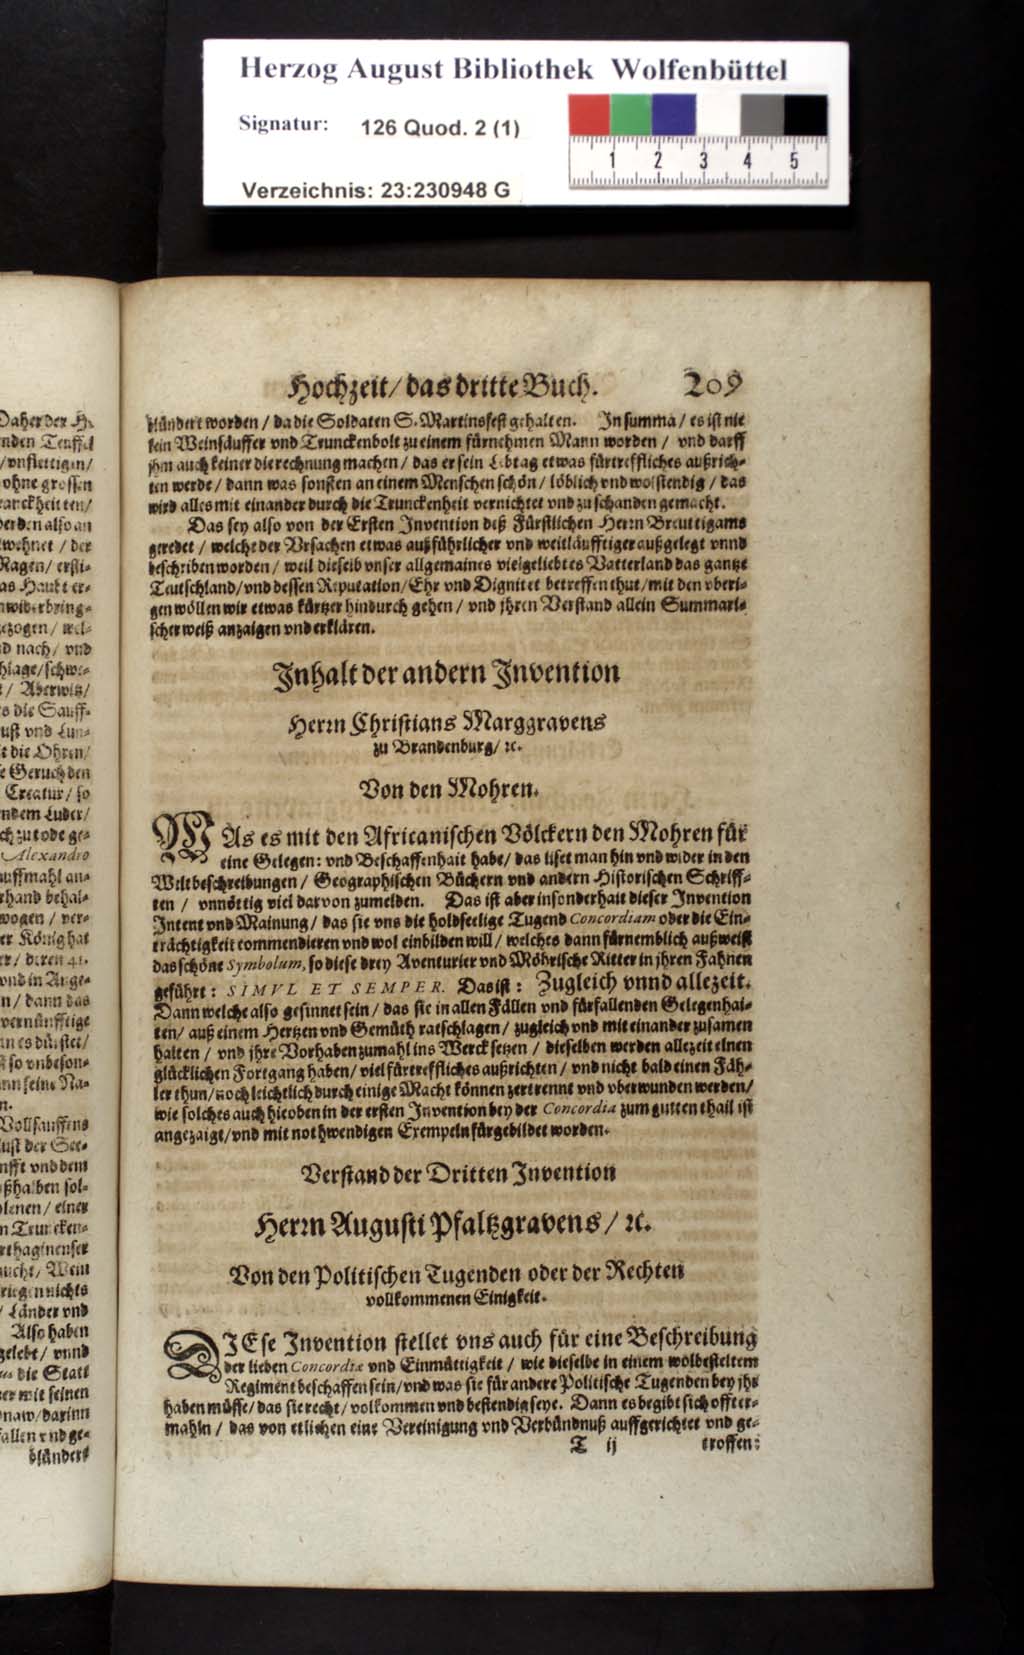 Herzog August Bibliothek Wolfenbüttel
Signatur: 126 Quod. 2 (1)
1 2 3 4 5
Verzeichnis: 23:230948 G
Hochzeit/ das dritte Buch. 209
bländert worden / da die Soldaten S. Martinsfest gehalten. In summa / es ist nie
kein Weinsäuffer vnd Trunckenbolt zu einem fürnehmen Mann worden / vnd darff
jhm auch keiner die rechnung machen / das er sein Lebtag etwas fürtreffliches außrich-
ten werde / dann was sonsten an einem Menschen schön / löblich vnd wolstendig / das
wird alles mit einander durch die Trunckenheit vernichtet vnd zu schanden gemacht.
Das sey also von der Ersten Invention deß Fürstlichen Herrn Breuttigams
geredet / welche der Vrsachen etwas außführlicher vnd weitläufftiger außgelegt vnnd
beschriben worden / weil dieselb vnser allgemaines vielgeliebtes Vatterland das gantze
Teutschland/ vnd dessen Reputation/ Ehr vnd Dignitet betreffen thut/ mit den vberi-
gen wöllen wir etwas kürtzer hindurch gehen / vnd jhren Verstand allein Summari-
scher weiß anzaigen vnd erklären.
Inhalt der andern Invention
Herrn Christians Marggravens
zu Brandenburg/ ꝛc.
Von den Mohren.
WAs es mit den Africanischen Völckern den Mohren für
eine Gelegen: vnd Beschaffenhait habe/ das liset man hin vnd wider in den
Weltbeschreibungen / Geographischen Büchern vnd andern Historischen Schriff-
ten / vnnöttig viel darvon zumelden. Das ist aber insonderhait dieser Invention
Intent vnd Mainung / das sie vns die holdseelige Tugend Concordiam oder die Ein-
trächtigkeit commendieren vnd wol einbilden will / welches dann fürnemblich außweist
das schöne Symbolum, so diese drey Aventurier vnd Möhrische Ritter in jhren Fahnen
geführt: SIMVL ET SEMPER. Das ist: Zugleich vnnd allezeit.
Dann welche also gesinnet sein / das sie in allen Fällen vnd fürfallenden Gelegenhai-
ten/ auß einem Hertzen vnd Gemüth ratschlagen / zugleich vnd mit einander zusamen
halten / vnd jhre Vorhaben zumahl ins Werck setzen / dieselben werden allezeit einen
glücklichen Fortgang haben/ viel fürtreffliches außrichten / vnd nicht bald einen Fäh-
ler thun/ noch leichtlich durch einige Macht können zertrennt vnd vberwunden werden/
wie solches auch hieoben in der ersten Invention bey der Concordia zum gutten thail ist
angezaigt/ vnd mit nothwendigen Exempeln fürgebildet worden.
Verstand der Dritten Invention
Herrn Augusti Pfaltzgravens / ꝛc.
Von den Politischen Tugenden oder der Rechten
vollkommenen Einigkeit.
DIEse Invention stellet vns auch für eine Beschreibung
der lieben Concordiæ vnd Einmüttigkeit / wie dieselbe in einem wolbestelten
Regiment beschaffen sein/ vnd was sie für andere Politische Tugenden bey jhr
haben müsse/ das sie recht/ volkommen vnd bestendig seye. Dann es begibt sich offter-
mahln / das von etlichen eine Vereinigung vnd Verbündnuß auffgerichtet vnd ge-
T ij troffen: